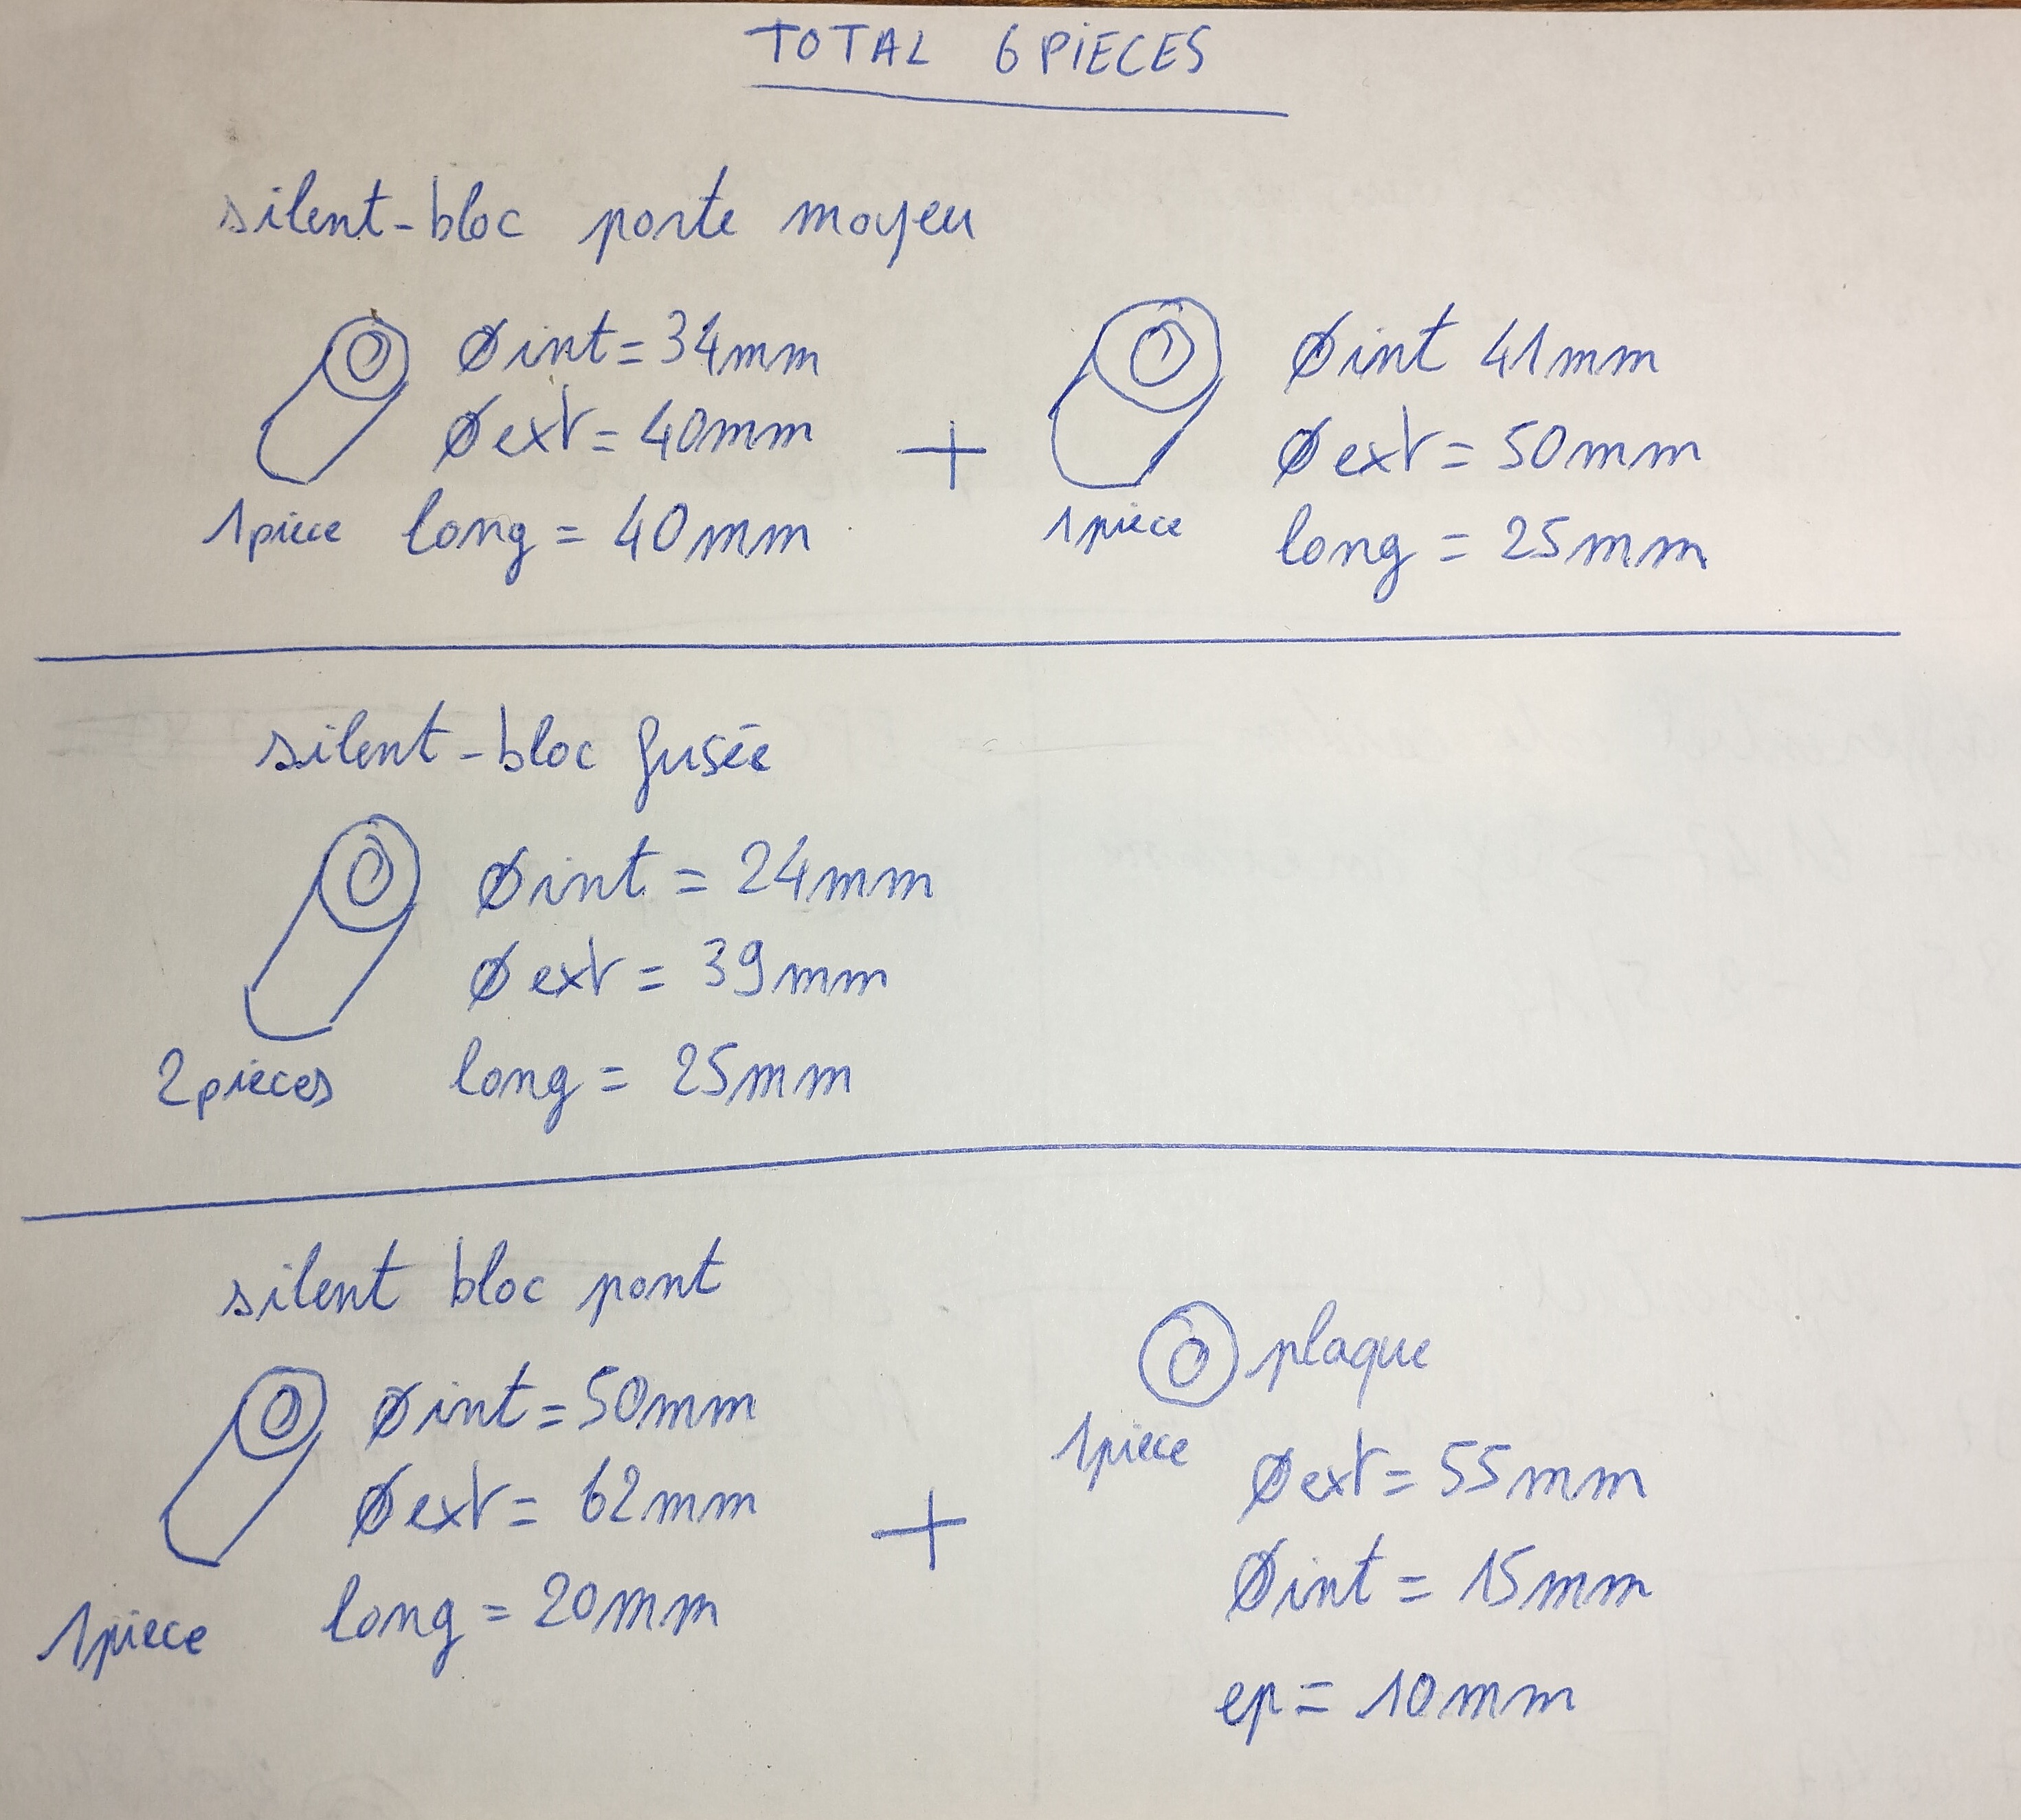 TOTAL 6 PIECES
silent-bloc porte moyeu
Ø int = 34mm
Ø ext = 40mm
1 pièce long = 40mm
+
Ø int 41mm
Ø ext = 50mm
1 pièce long = 25mm
silent-bloc fusée
Ø int = 24mm
Ø ext = 39mm
2 pièces long = 25mm
silent bloc pont
Ø int = 50mm
Ø ext = 62mm
1 pièce long = 20mm
+
plaque
1 pièce
Ø ext = 55mm
Ø int = 15mm
ep = 10mm